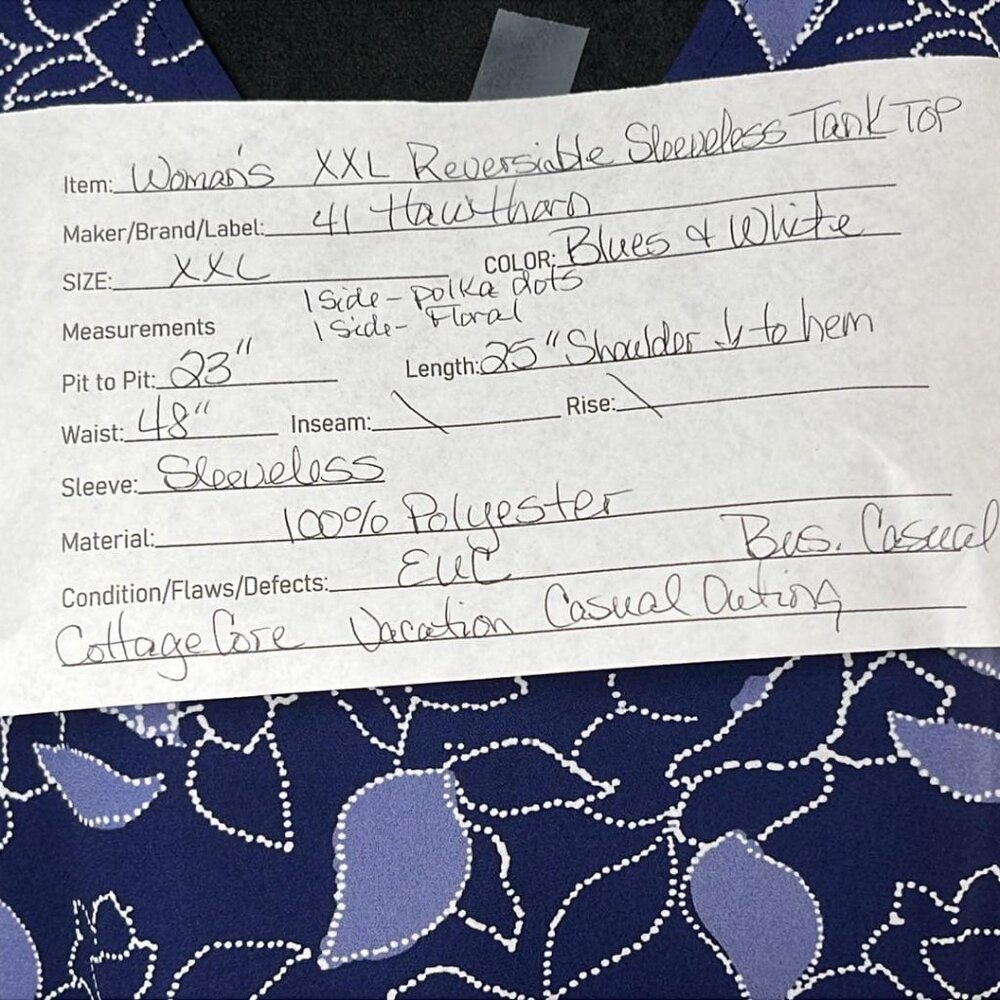 Item: Woman's XXL Reversiable Sleeveless Tank Top
Maker/Brand/Label: 41 Hawthorn
SIZE: XXL COLOR: Blues & White
1 Side - polka dots
Measurements 1 Side - Floral
Pit to Pit: 23" Length: 25" Shoulder ↓ to hem
Waist: 48" Inseam: \ Rise: \
Sleeve: Sleeveless
Material: 100% Polyester
Condition/Flaws/Defects: EUC Bus. Casual
Cottage Core Vacation Casual Outing